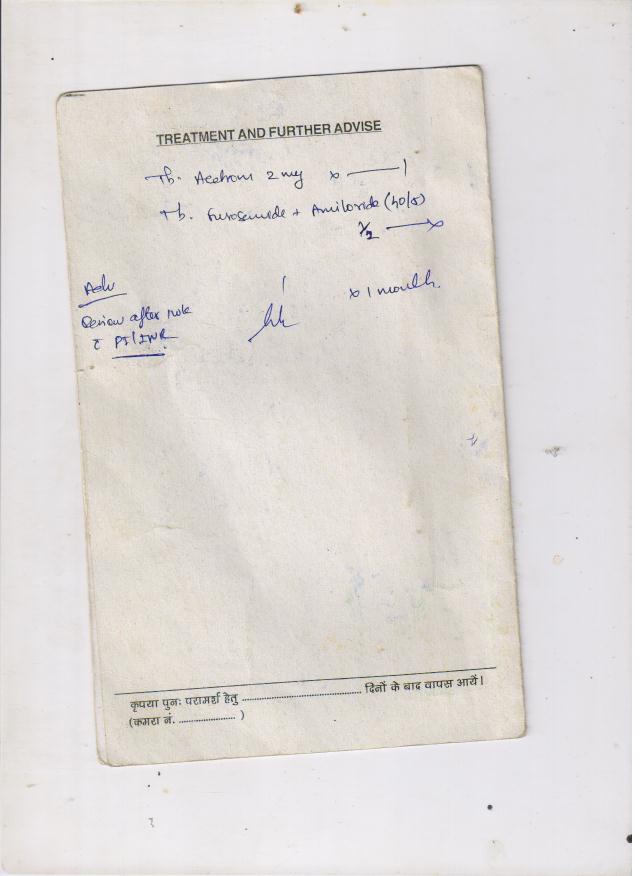 TREATMENT AND FURTHER ADVISE
Tb. Acetrom 2 mg x —— 1
Tb. Furosemide + Amiloride (40/5)
1/2 —— x
x 1 month.
Adv
Review after
c PT/INR
कृपया पुनः परामर्श हेतु ........................................ दिनों के बाद वापस आयें।
(कमरा नं. ................... )